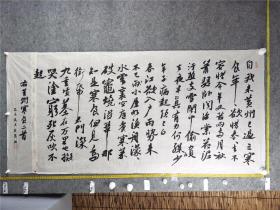 自我来黄州已過三寒
食年年欲惜春春去不
容惜今年又苦雨兩月秋
蕭瑟卧聞海棠花泥
汙燕支雪闇中偷負
去夜半真有力何殊少
年子病起頭已白
春江欲入户雨勢来
不已小屋如漁舟濛濛
水雲裏空庖煮寒菜
破竈燒濕葦那
知是寒食但見烏
銜紙君門深
九重墳墓在万里也擬
哭塗窮死灰吹不
起
右黄州寒食二首